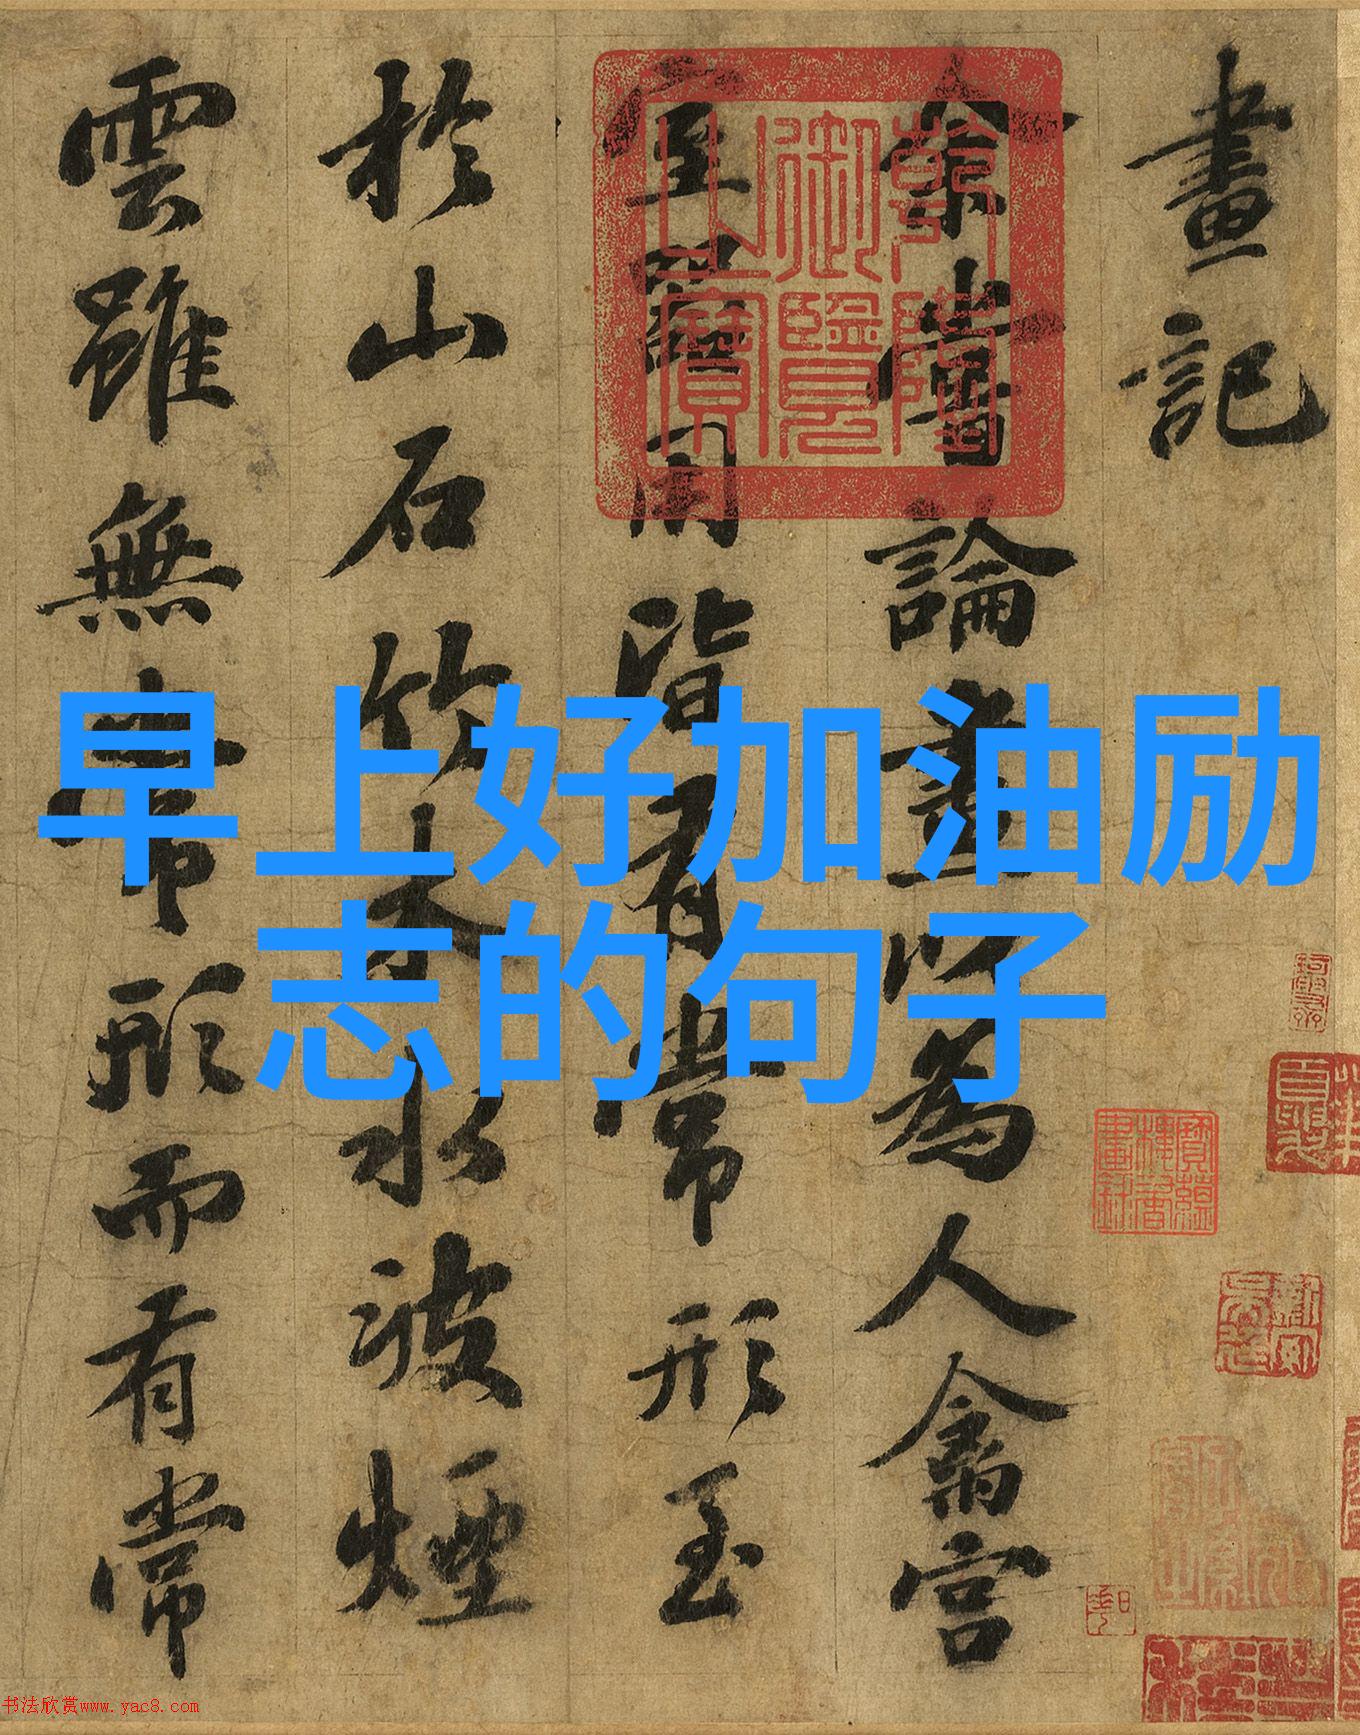 畫記
余嘗論畫以為人禽宮
室器用皆有常形至
於山石竹木水波煙
雲雖無常形而有常
乾隆
御覽
之寶
早上好加油励
志的句子
书法欣赏www.yac8.com